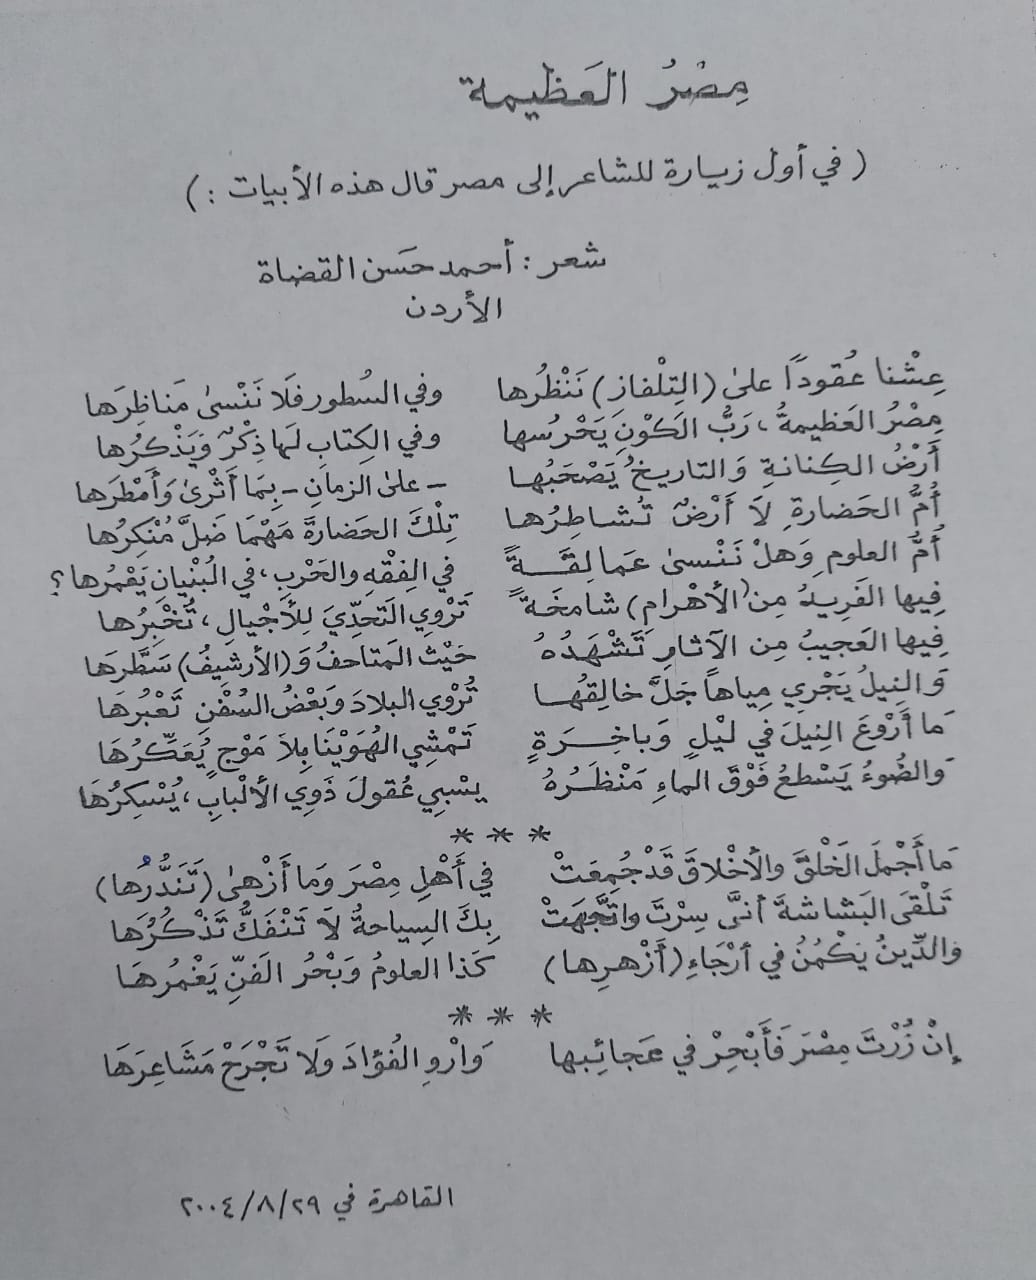 مِصْرُ العَظيمة
(في أول زيارة للشاعر إلى مصر قال هذه الأبيات :)
شعر : أحمد حَسَن القضاة
الأردن
عِشْنا عُقوداً علىٰ (التِلْفاز) نَنْظُرُها وفي السُطور فَلَا نَنْسىٰ مَناظِرَها
مِصْرُ العَظيمةُ، رَبُّ الكَوْنِ يَحْرُسها وفي الكِتابِ لَها ذِكْرٌ وَيَذْكُرُها
أَرْضُ الكِنانةِ وَالتاريخُ يَصْحَبُها - علىٰ الزمانِ - بِمَا أَثْرىٰ وَأَمْطَرَها
أُمُّ الحَضارةِ لاَ أَرْضٌ تُشاطِرُها تِلْكَ الحَضارةَ مَهْمَا ضَلَّ مُنْكِرُها
أُمُّ العلومِ وَهلْ نَنْسىٰ عَمالِقَةً في الفِقْهِ والحَرْبِ، في البُنْيانِ يَعْمُرُها؟
فِيها الفَرِيدُ مِن (الأهْرامِ) شامخَةً تَرْوِي التَحدِّيَ لِلأجْيالِ، تُخْبِرُها
فِيها العَجيبُ مِن الآثارِ تَشْهَدُهُ حَيْثُ المَتاحفُ وَ(الأرشيفُ) سَطَّرها
وَالنِيلُ يَجْرِي مِياهاً جَلَّ خالِقُها تُرْوِي البلادَ وَبَعْضُ السُفْنِ تَعْبُرُها
مَا أَرْوَعَ النِيلَ في ليْلٍ وَباخِرَةٍ تَمْشِي الهُوَيْنَا بِلاَ مَوْجٍ يُعَكِّرُهَا
وَالضُوءُ يَسْطعُ فَوْقَ الماءِ مَنْظَرُهُ يسْبِي عُقولَ ذَوِي الألْبابِ، يُسْكِرُهَا
* * *
مَا أَجْمَلَ الخَلْقَ والأخْلاقَ قَدْ جُمِعَتْ في أَهْلِ مِصْرَ وَما أَزْهىٰ (تَنَدُّرُها)
تَلْقَى البَشاشةَ أنَّى سِرْتَ واتَّجَهَتْ بِكَ السِياحةُ لاَ تَنْفَكُّ تَذْكُرُهَا
وَالدِّينُ يَكْمُنُ في أرْجَاءِ (أَزْهرِها) كَذا العلومُ وَبَحْرُ الفَنِّ يَغْمُرهَا
* * *
إِنْ زُرْتَ مِصْرَ فَأَبْحِرْ في عَجائِبها وَارْوِ الفُؤادَ وَلا تَجْرَحْ مَشَاعِرَهَا
القاهرة في ٢٠٠٤/٨/٢٩